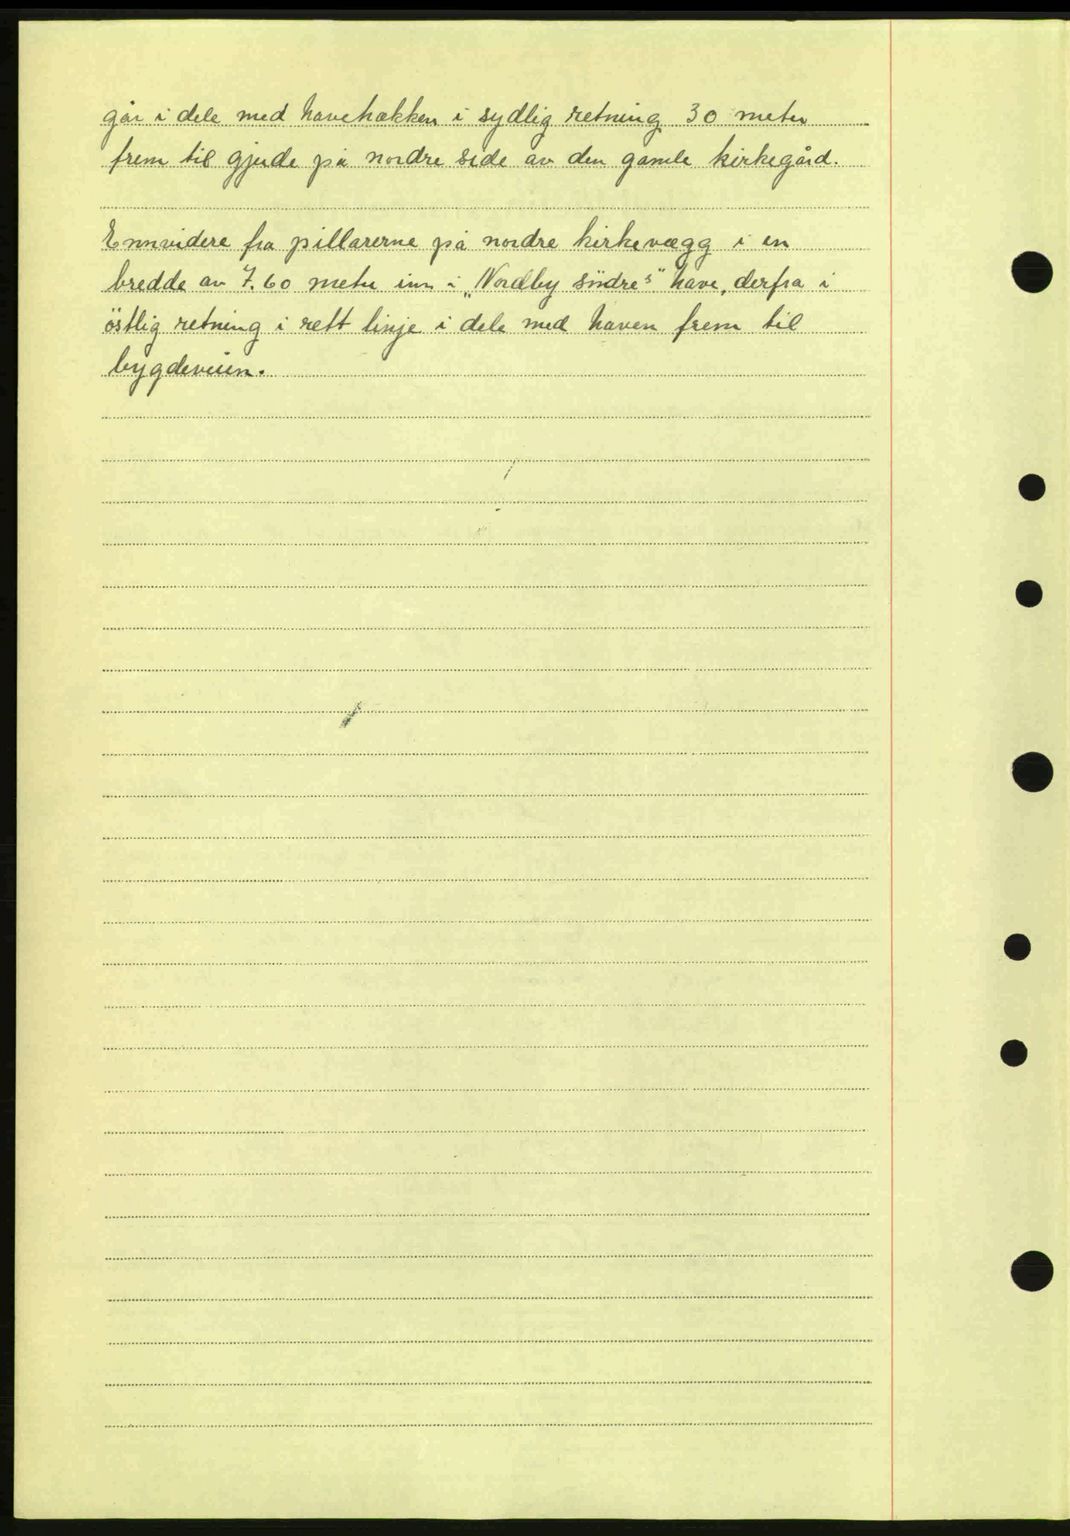 går i dele med havehækken i sydlig retning 30 meter
frem til gjerde på nordre side av den gamle kirkegård.
Ennvidere fra pillarerne på nordre kirkevægg i en
bredde av 7.60 meter inn i „Nordby söndre's" have, derfra i
östlig retning i rett linje i dele med haven frem til
bygdeveien.